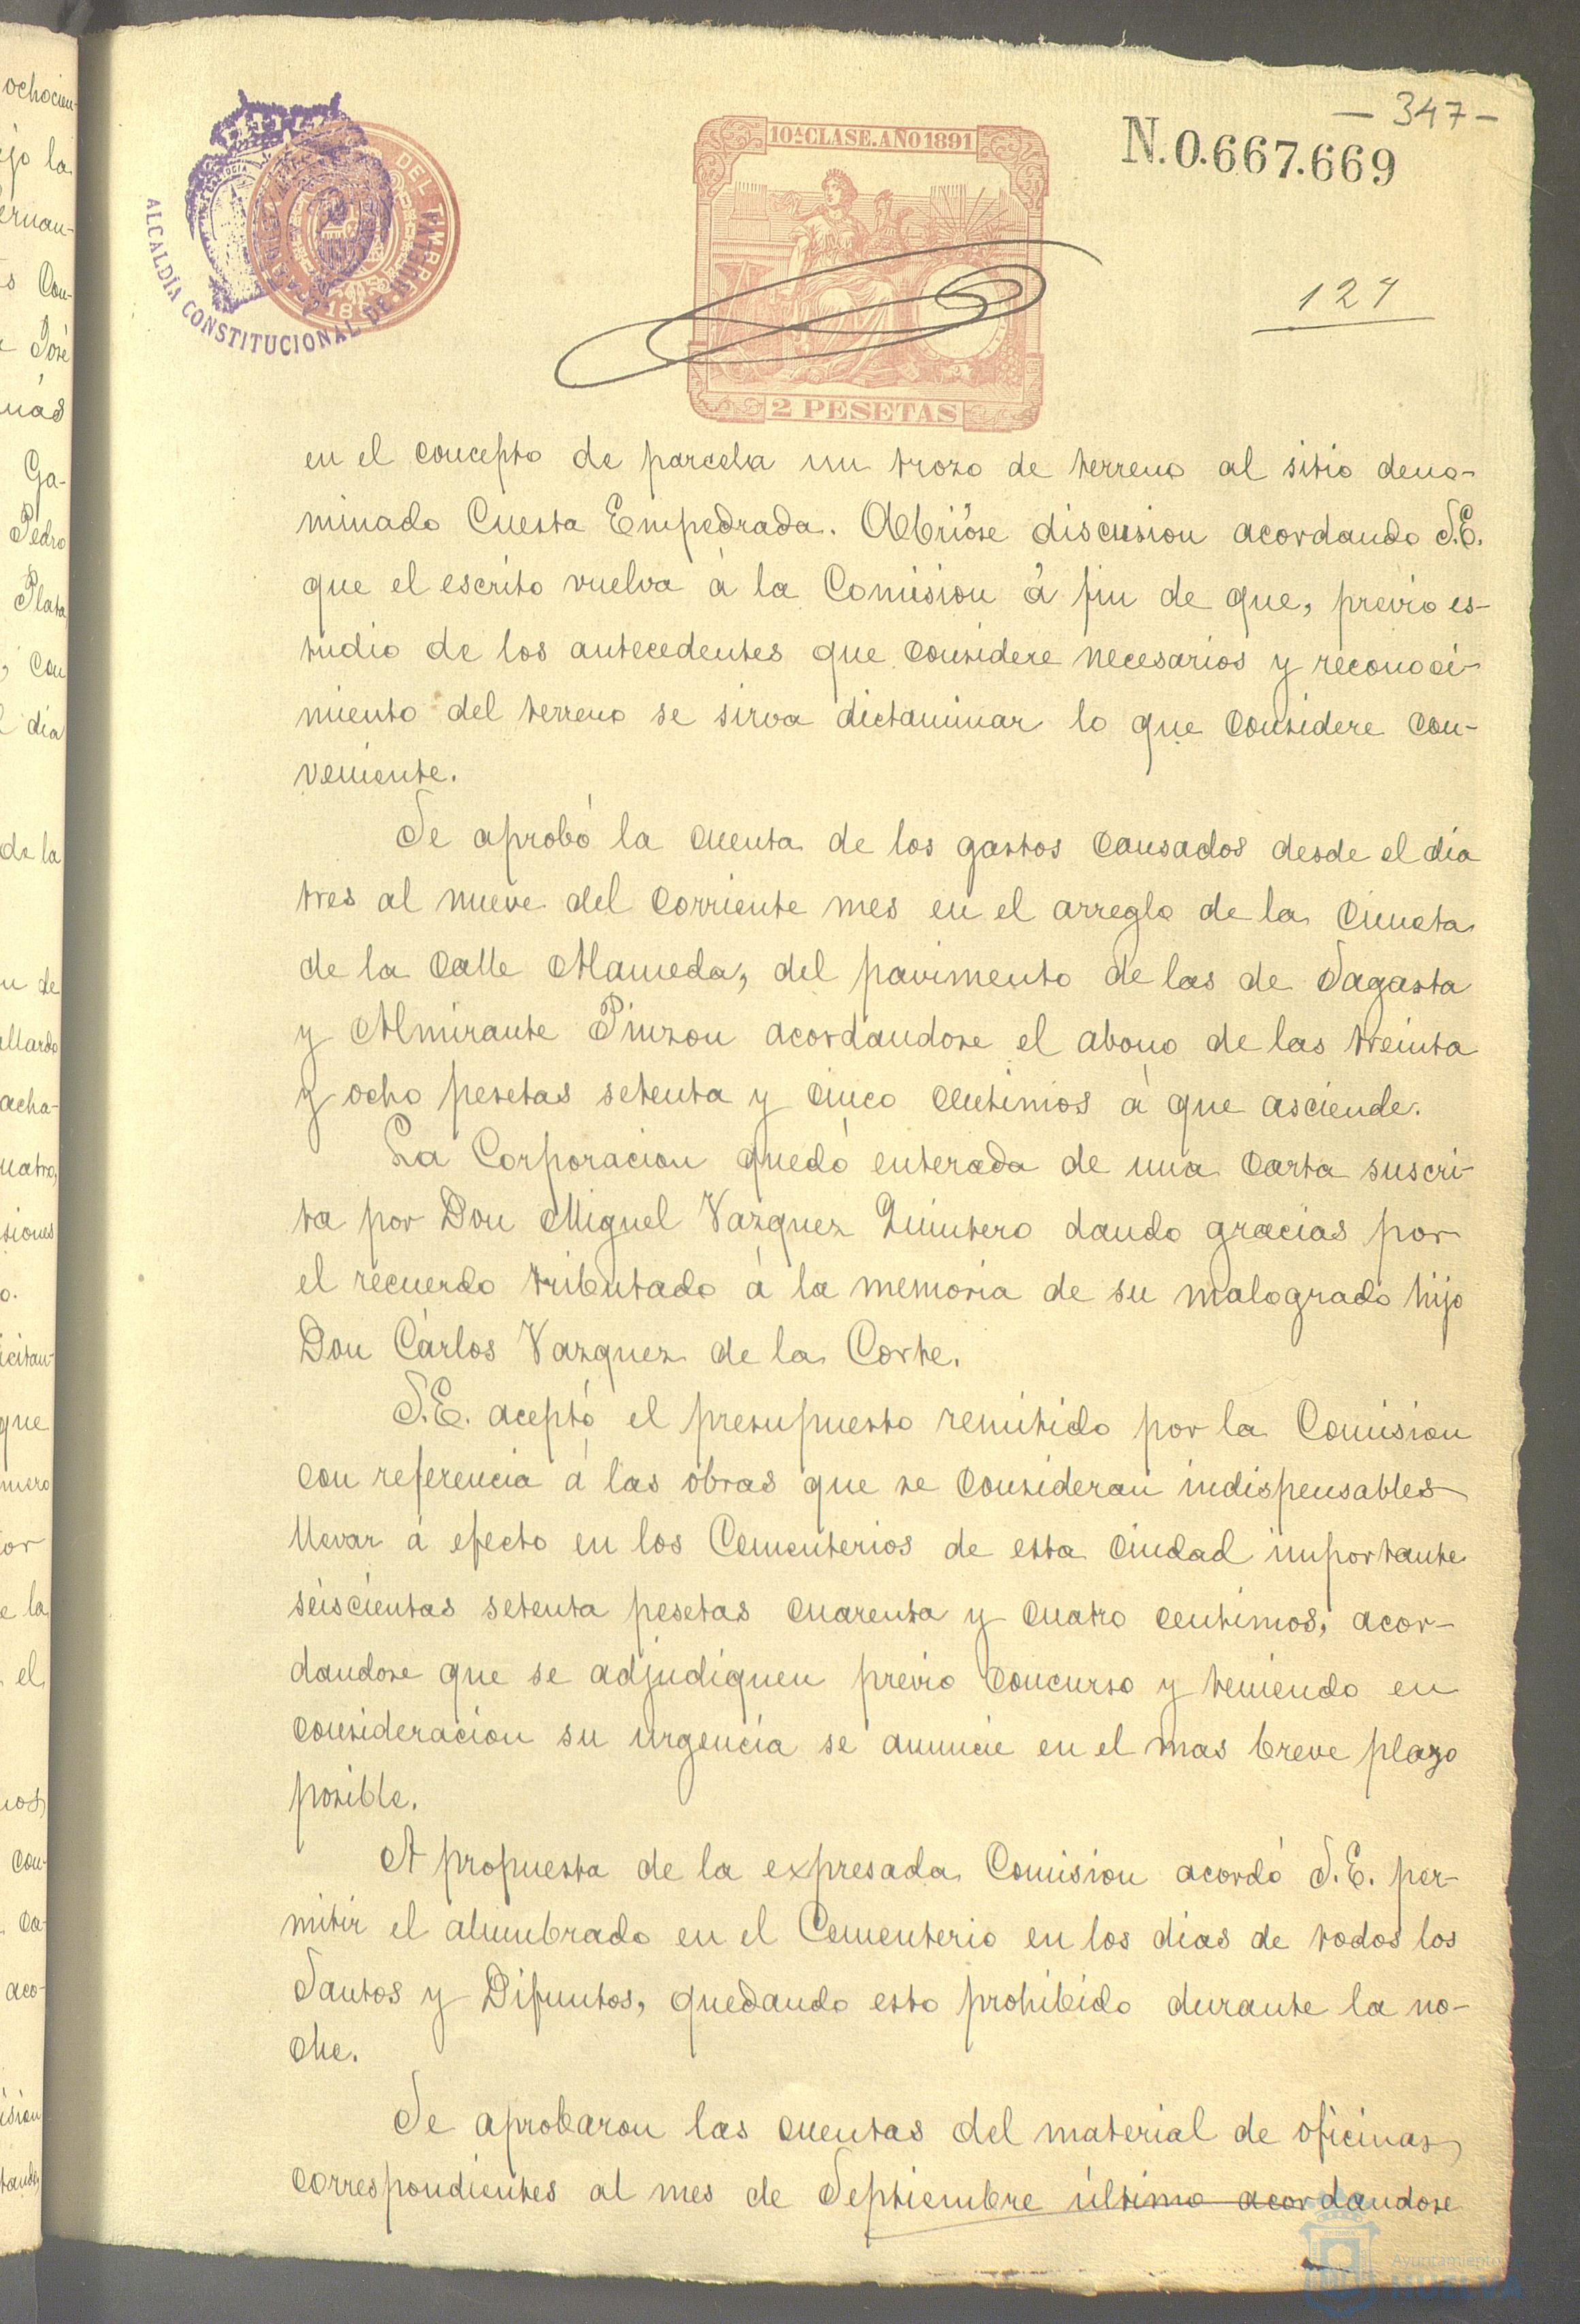 - 347 -
10ª CLASE. AÑO 1891
N.0.667.669
ALCALDÍA CONSTITUCIONAL DE HUELVA
DEL TIMBRE
2 PESETAS
en el concepto de parcela un trozo de terreno al sitio deno-
minado Cuesta Empedrada. Abrióse discusion acordando S.E.
que el escrito vuelva á la Comision á fin de que, previo es-
tudio de los antecedentes que considere necesarios y reconoci-
miento del terreno se sirva dictaminar lo que considere con-
veniente.
Se aprobó la cuenta de los gastos causados desde el dia
tres al nueve del corriente mes en el arreglo de la cuneta
de la calle Alameda, del pavimento de las de Sagasta
y Almirante Pinzon acordandose el abono de las treinta
y ocho pesetas setenta y cinco centimos á que asciende.
La Corporacion quedó enterada de una carta suscri-
ta por Don Miguel Vazquez Quintero dando gracias por
el recuerdo tributado á la memoria de su malogrado hijo
Don Cárlos Vazquez de la Corte.
S.E. aceptó el presupuesto remitido por la Comision
con referencia á las obras que se consideran indispensables
llevar á efecto en los Cementerios de esta Ciudad importante
seiscientas setenta pesetas cuarenta y cuatro centimos, acor-
dandose que se adjudiquen previo concurso y teniendo en
consideracion su urgencia se anuncie en el mas breve plazo
posible.
A propuesta de la expresada Comision acordó S.E. per-
mitir el alumbrado en el Cementerio en los dias de todos los
Santos y Difuntos, quedando esto prohibido durante la no-
che.
Se aprobaron las cuentas del material de oficinas
correspondientes al mes de Septiembre último acordandose
Ayuntamiento
HUELVA
ochocien-
Con-
José
Ga-
Pedro
Plata
con
dia
de la
siones
que
or
e la
el
con-
aco-